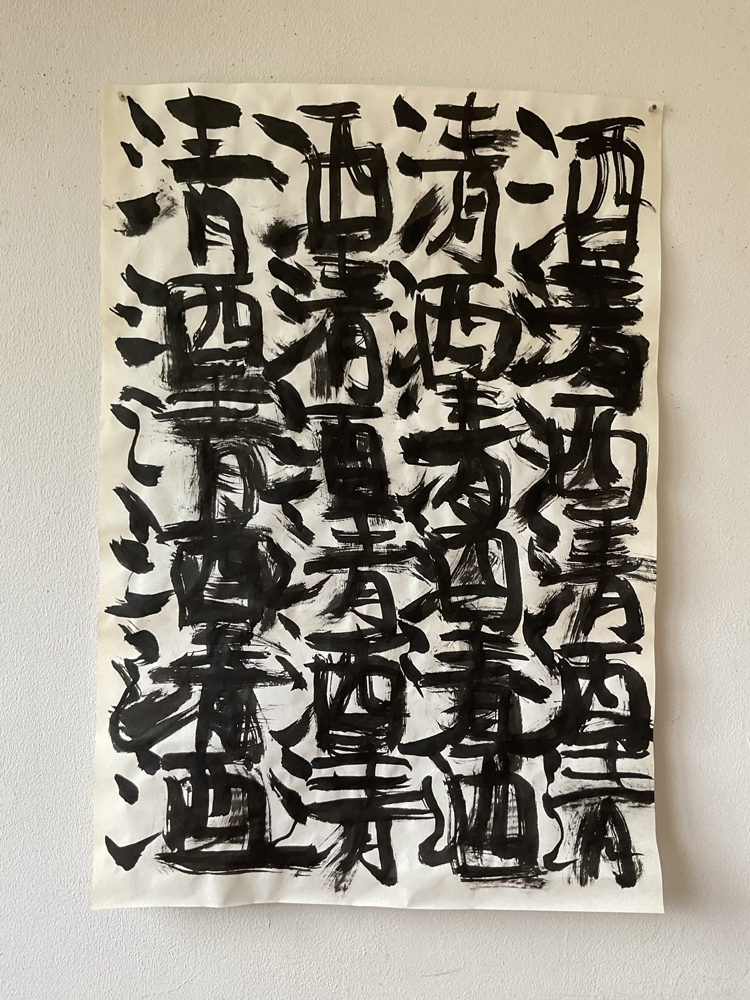 酒清酒清酒清
清酒清酒清酒
酒清酒清酒清
清酒清酒清酒